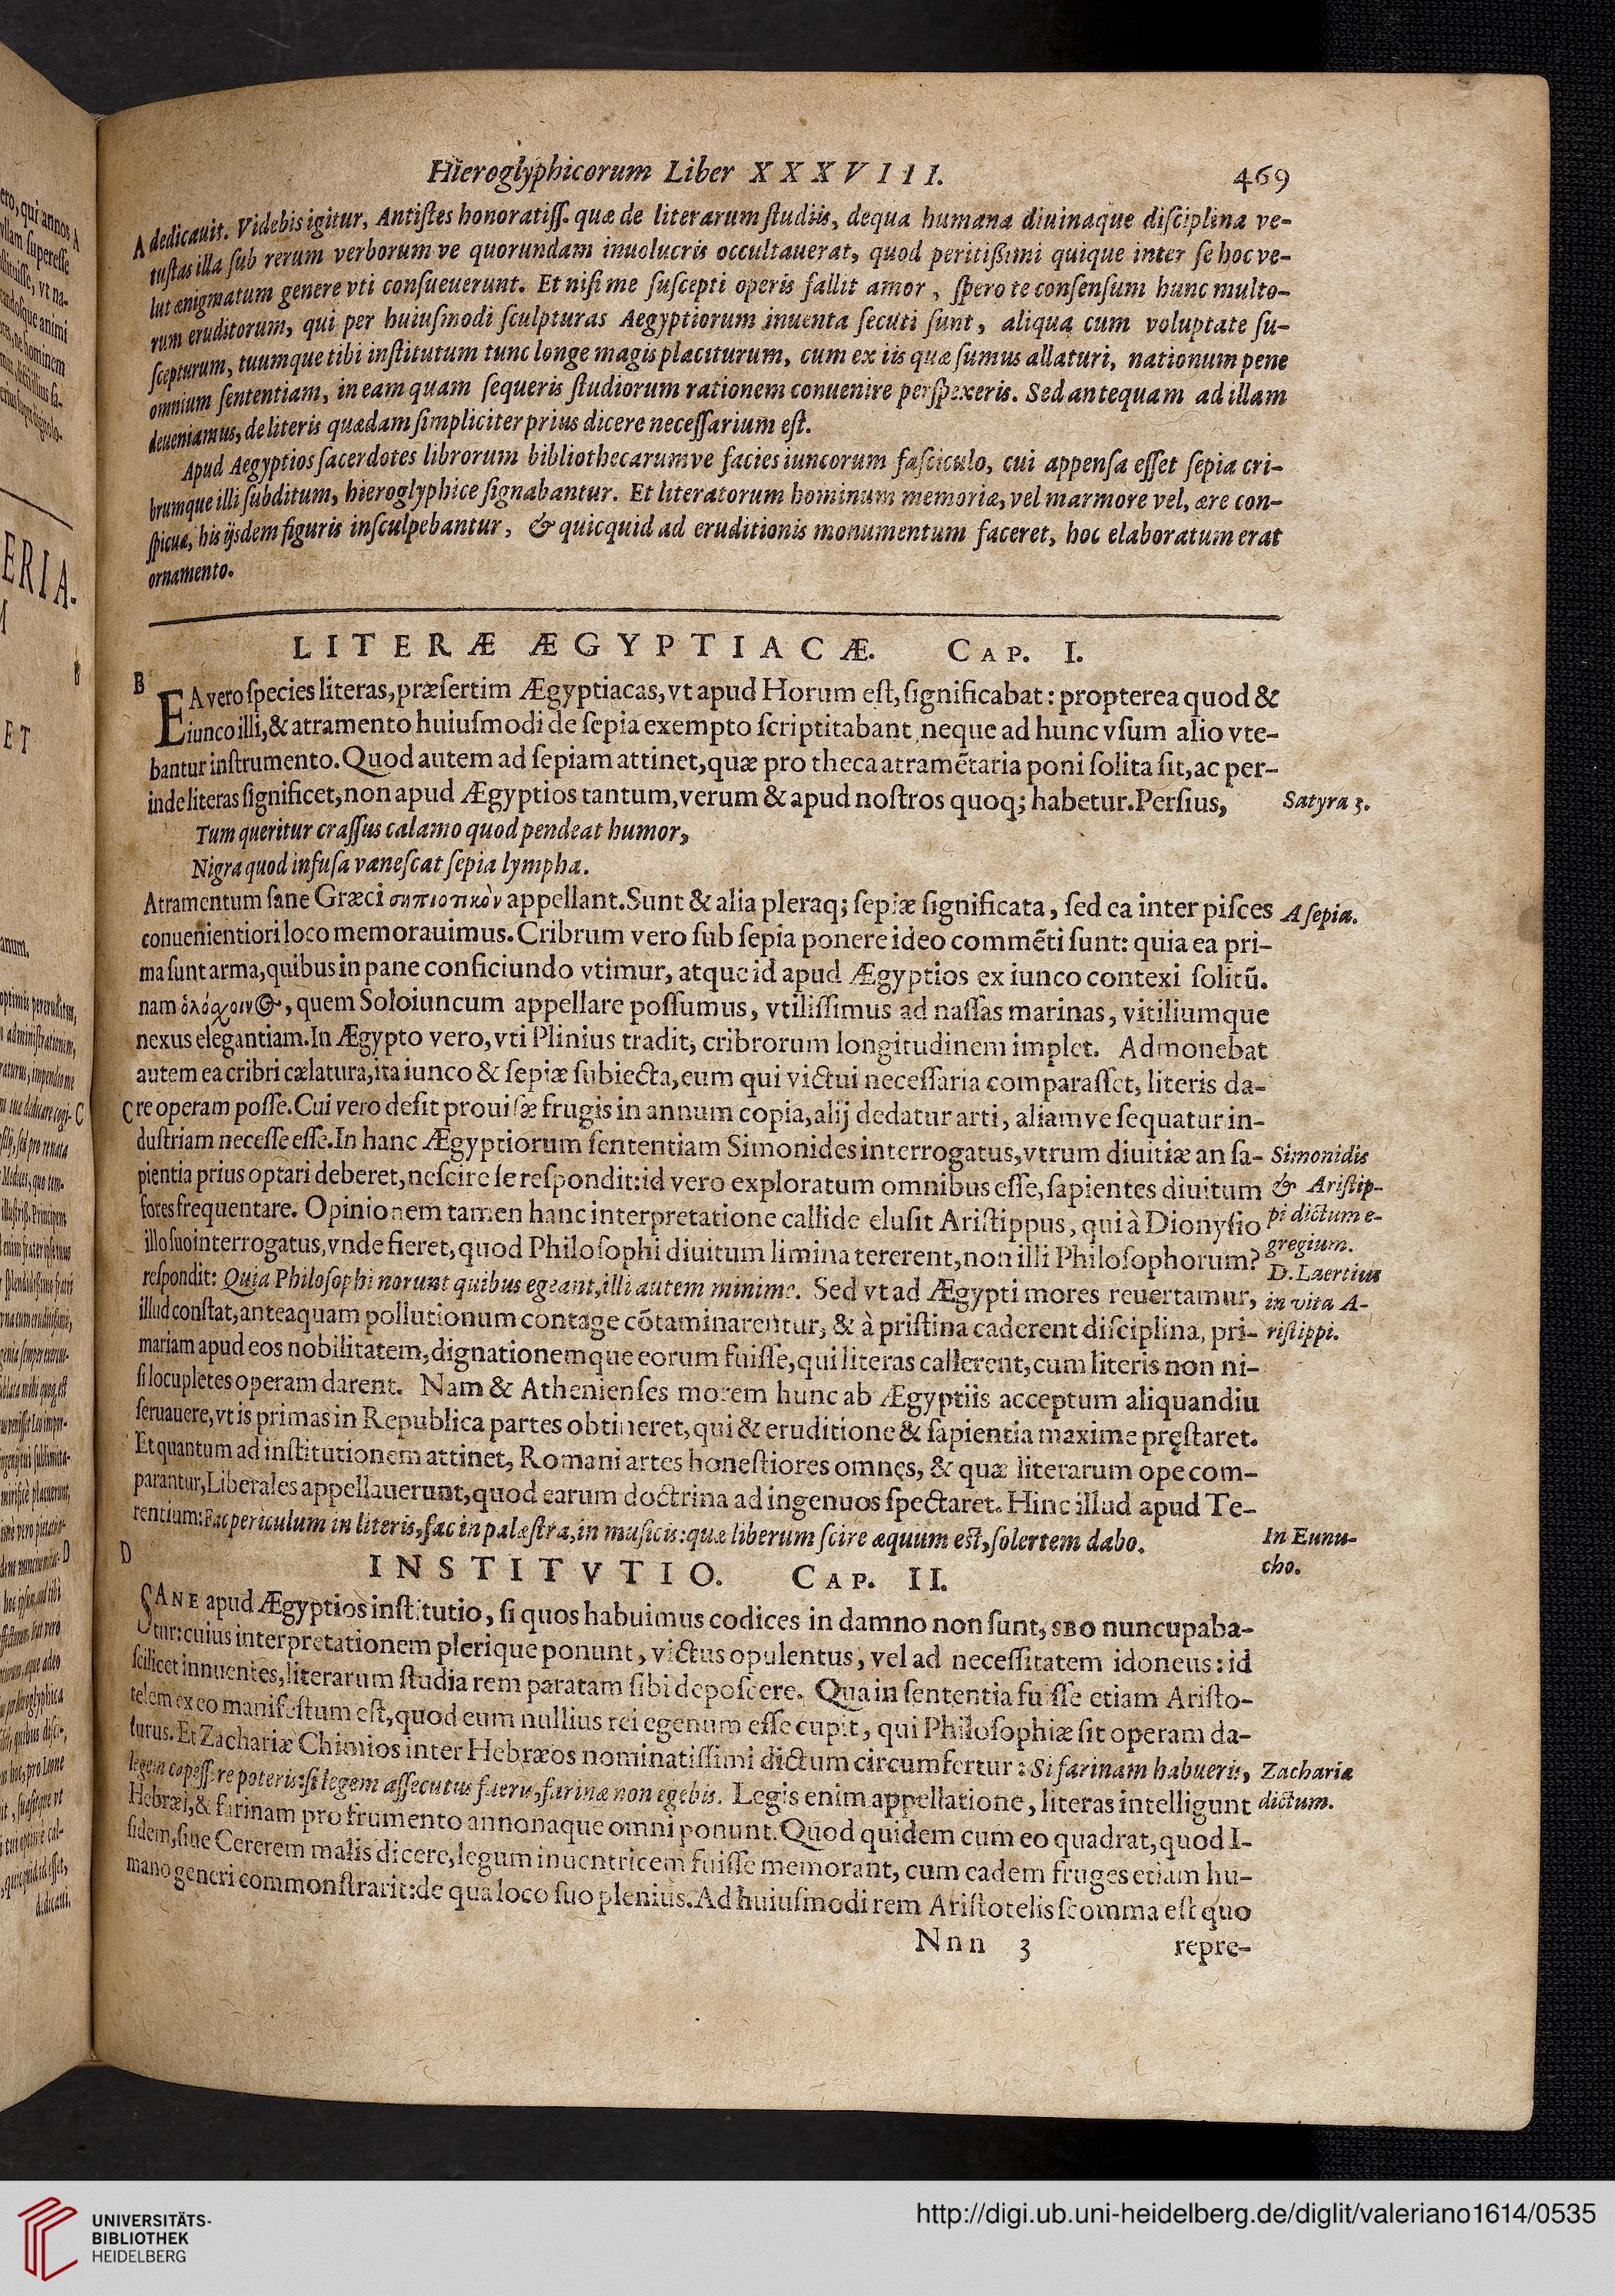 Hieroglyphicorum Liber XXXVIII. 469
A dedicauit. Videbis igitur, Antiſtes honoratiſſ. quæ de literarum ſtudiis, dequa humana diuinaque diſciplina ve-
tuſtas illa ſub rerum verborum ve quorundam inuolucris occultauerat, quod peritißimi quique inter ſe hoc ve-
lut ænigmatum genere vti conſueuerunt. Et niſi me ſuſcepti operis fallit amor, ſpero te conſenſum hunc multo-
rum eruditorum, qui per huiuſmodi ſculpturas Aegyptiorum inuenta ſecuti ſunt, aliqua cum voluptate ſu-
ſcepturum, tuumque tibi inſtitutum tunc longe magis placiturum, cum ex iis quæ ſumus allaturi, nationum pene
omnium ſententiam, in eam quam ſequeris ſtudiorum rationem conuenire perſpexeris. Sed antequam ad illam
deueniamus, de literis quædam ſimpliciter prius dicere neceſſarium eſt.
Apud Aegyptios ſacerdotes librorum bibliothecarumve facies iuncorum faſciculo, cui appenſa eſſet ſepia cri-
brumque illi ſubditum, hieroglyphice ſignabantur. Et literatorum hominum memoriæ, vel marmore vel, ære con-
ſpicuæ, his ijsdem figuris inſculpebantur, & quicquid ad eruditionis monumentum faceret, hoc elaboratum erat
ornamento.
LITERÆ ÆGYPTIACÆ. CAP. I.
B EA vero ſpecies literas, præſertim Ægyptiacas, vt apud Horum eſt, ſignificabat: propterea quod &
iunco illi, & atramento huiuſmodi de ſepia exempto ſcriptitabant neque ad hunc vſum alio vte-
bantur inſtrumento. Quod autem ad ſepiam attinet, quæ pro theca atramẽtaria poni ſolita ſit, ac per-
inde literas ſignificet, non apud Ægyptios tantum, verum & apud noſtros quoq; habetur. Perſius, Satyra 3.
Tum queritur craſſus calamo quod pendeat humor,
Nigra quod infuſa vaneſcat ſepia lympha.
Atramentum ſane Græci σηπιοτικὸν appellant. Sunt & alia pleraq; ſepiæ ſignificata, ſed ea inter piſces A ſepia.
conuenientiori loco memorauimus. Cribrum vero ſub ſepia ponere ideo commẽti ſunt: quia ea pri-
ma ſunt arma, quibus in pane conficiundo vtimur, atque id apud Ægyptios ex iunco contexi ſolitũ.
nam ὁλόχοινος, quem Soloiuncum appellare poſſumus, vtiliſſimus ad naſſas marinas, vitiliumque
nexus elegantiam. In Ægypto vero, vti Plinius tradit, cribrorum longitudinem implet. Admonebat
autem ea cribri cælatura, ita iunco & ſepiæ ſubiecta, eum qui victui neceſſaria comparaſſet, literis da-
C re operam poſſe. Cui vero deſit prouiſæ frugis in annum copia, alij dedatur arti, aliamve ſequatur in-
duſtriam neceſſe eſſe. In hanc Ægyptiorum ſententiam Simonides interrogatus, vtrum diuitiæ an ſa- Simonidis
pientia prius optari deberet, neſcire ſe reſpondit: id vero exploratum omnibus eſſe, ſapientes diuitum & Ariſtip-
fores frequentare. Opinionem tamen hanc interpretatione callide eluſit Ariſtippus, qui à Dionyſio pi dictum e-
illo ſuo interrogatus, vnde fieret, quod Philoſophi diuitum limina tererent, non illi Philoſophorum? gregium.
reſpondit: Quia Philoſophi norunt quibus egeant, illi autem minime. Sed vt ad Ægypti mores reuertamur, D. Laertius
in vita A-
illud conſtat, anteaquam pollutionum contage cõtaminarentur, & à priſtina caderent diſciplina, pri- riſtippi.
mariam apud eos nobilitatem, dignationemque eorum fuiſſe, qui literas callerent, cum literis non ni-
ſi locupletes operam darent. Nam & Athenienſes morem hunc ab Ægyptiis acceptum aliquandiu
ſeruauere, vt is primas in Republica partes obtineret, qui & eruditione & ſapientia maxime pręſtaret.
Et quantum ad inſtitutionem attinet, Romani artes honeſtiores omnęs, & quæ literarum ope com-
parantur, Liberales appellauerunt, quod earum doctrina ad ingenuos ſpectaret. Hinc illud apud Te-
rentium: Fac periculum in literis, fac in palæſtra, in muſicis: quæ liberum ſcire æquum eſt, ſolertem dabo. In Eunu-
cho.
D INSTITVTIO. CAP. II.
SANE apud Ægyptios inſtitutio, ſi quos habuimus codices in damno non ſunt, SBO nuncupaba-
tur: cuius interpretationem plerique ponunt, victus opulentus, vel ad neceſſitatem idoneus: id
ſcilicet innuentes, literarum ſtudia rem paratam ſibi depoſcere. Qua in ſententia fuiſſe etiam Ariſto-
telem ex eo manifeſtum eſt, quod eum nullius rei egenum eſſe cupit, qui Philoſophiæ ſit operam da-
turus. Et Zachariæ Chimios inter Hebræos nominatiſſimi dictum circumfertur: Si farinam habueris, Zachariæ
legem capeſſere poteris: ſi legem aſſecutus fueris, farinæ non egebis. Legis enim appellatione, literas intelligunt dictum.
Hebræi, & farinam pro frumento annonaque omni ponunt. Quod quidem cum eo quadrat, quod I-
ſidem, ſiue Cererem malis dicere, legum inuentricem fuiſſe memorant, cum eadem fruges etiam hu-
mano generi commonſtrarit: de qua loco ſuo plenius. Ad huiuſmodi rem Ariſtotelis ſcomma eſt quo
Nnn 3 repre-
UNIVERSITÄTS-
BIBLIOTHEK
HEIDELBERG
http://digi.ub.uni-heidelberg.de/diglit/valeriano1614/0535